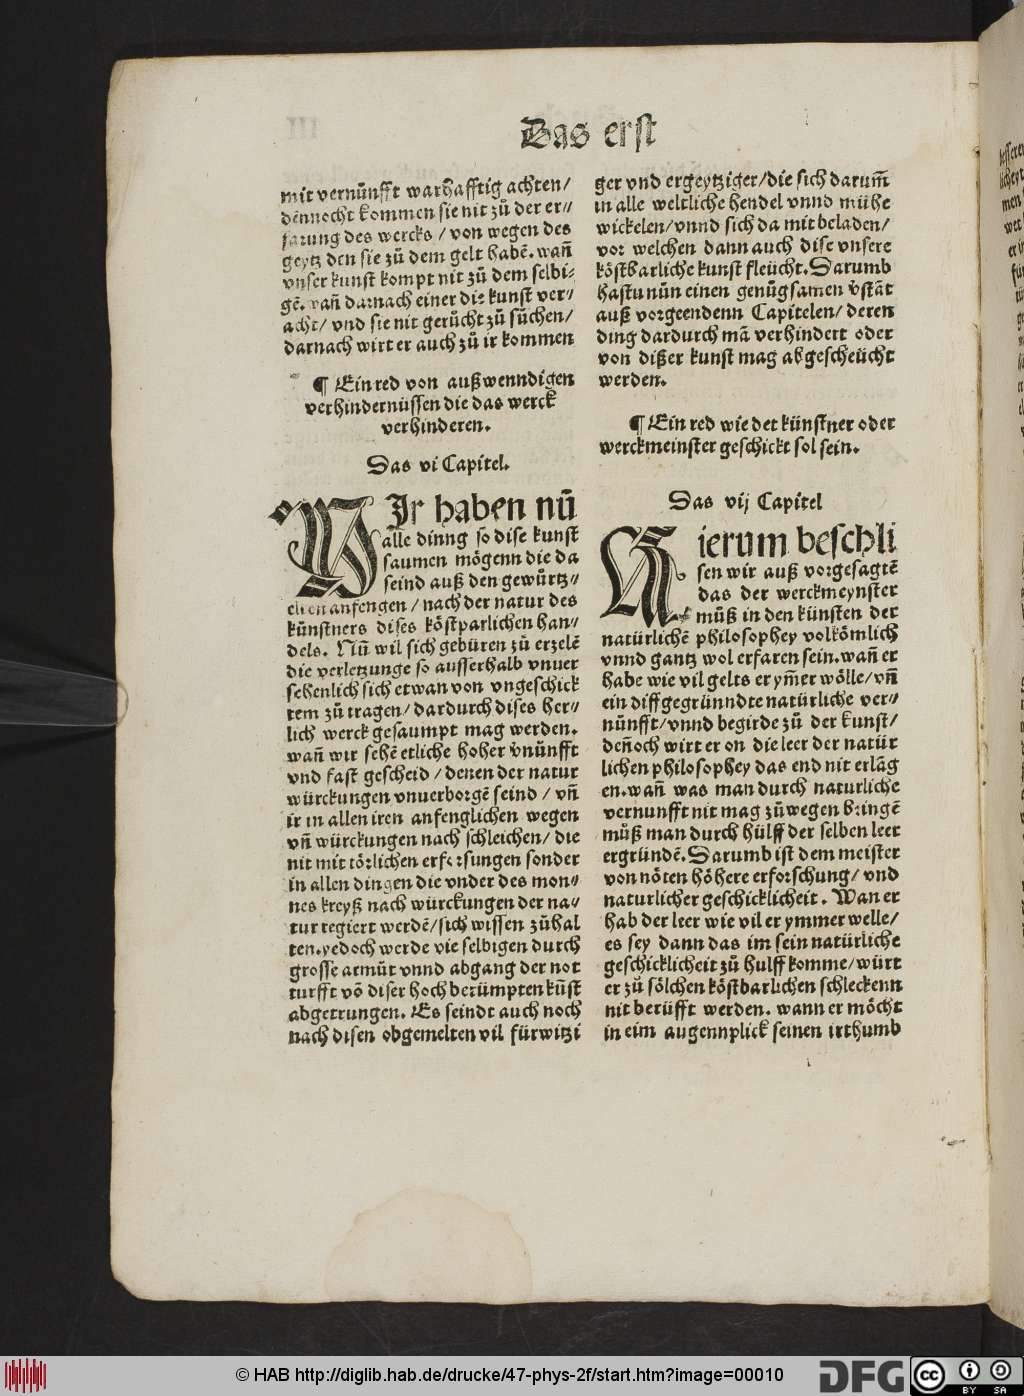 Das erst
mit vernünfft warhafftig achten/
dēnnocht kommen sie nit zů der er//
farung des wercks / von wegen des
geytz den sie zů dem gelt habē. wañ
vnser kunst kompt nit zů dem selbi-
gē. wañ darnach einer die kunst ver//
acht/ vnd sie nit gerůcht zů sůchen/
darnach wirt er auch zů ir kommen
¶ Ein red von außwenndigen
verhindernüssen die das werck
verhinderen.
Das vi Capitel.
WIr haben nū
alle dinng so dise kunst
saumen mögenn die da
seind auß den gewürtz//
anfengen / nach der natur des
künstners dises köstparlichen han//
dels. Nū wil sich gebüren zů erzelē
die verletzunge so ausserhalb vnuer
sehenlich sich etwan von vngeschick
tem zů tragen/ dardurch dises her//
lich werck gesaumpt mag werden.
wañ wir sehē etliche hoher v̄nünfft
vnd fast gescheid / denen der natur
würckungen vnuerborgē seind / vñ
ir in allen iren anfenglichen wegen
vñ würckungen nach schleichen/ die
nit mit törlichen erforsungen sonder
in allen dingen die vnder des mon//
nes kreyß nach würckungen der na//
tur regiert werdē/sich wissen zůhal
ten. yedoch werde vie selbigen durch
grosse armůt vnnd abgang der not
turfft vō diser hoch berümpten kūst
abgetrungen. Es seindt auch noch
nach disen obgemelten vil fürwitzi
ger vnd ergeytziger/die sich darum̄
in alle weltliche hendel vnnd mühe
wickelen/vnnd sich da mit beladen/
vor welchen dann auch dise vnsere
köstbarliche kunst fleücht. Darumb
hastu nūn einen genůgsamen v̄stāt
auß vorgeendenn Capitelen/ deren
ding dardurch mā verhindert oder
von dißer kunst mag abgescheücht
werden.
¶ Ein red wie det künstner oder
werckmeinster geschickt sol sein.
Das vij Capitel
HIerum beschli
sen wir auß vorgesagtē
das der werckmeynster
můß in den künsten der
natürlichē philosophey volkōmlich
vnnd gantz wol erfaren sein. wañ er
habe wie vil gelts er ym̄er wölle/vñ
ein diff gegründte natürliche ver//
nünfft/vnnd begirde zů der kunst/
deñoch wirt er on die leer der natür
lichen philosophey das end nit erlāg
en. wañ was man durch naturliche
vernunfft nit mag zůwegen bringē
můß man durch hülff der selben leer
ergründē. Darumb ist dem meister
von nöten höhere erforschung/ vnd
naturlicher geschicklicheit. Wan er
hab der leer wie vil er ymmer welle/
es sey dann das im sein natürliche
geschicklicheit zů hulff komme/würt
er zů sölchen köstbarlichen schleckenn
nit berüfft werden. wann er möcht
in eim augennplick seinen irthumb
© HAB http://diglib.hab.de/drucke/47-phys-2f/start.htm?image=00010
DFG
cc
BY SA